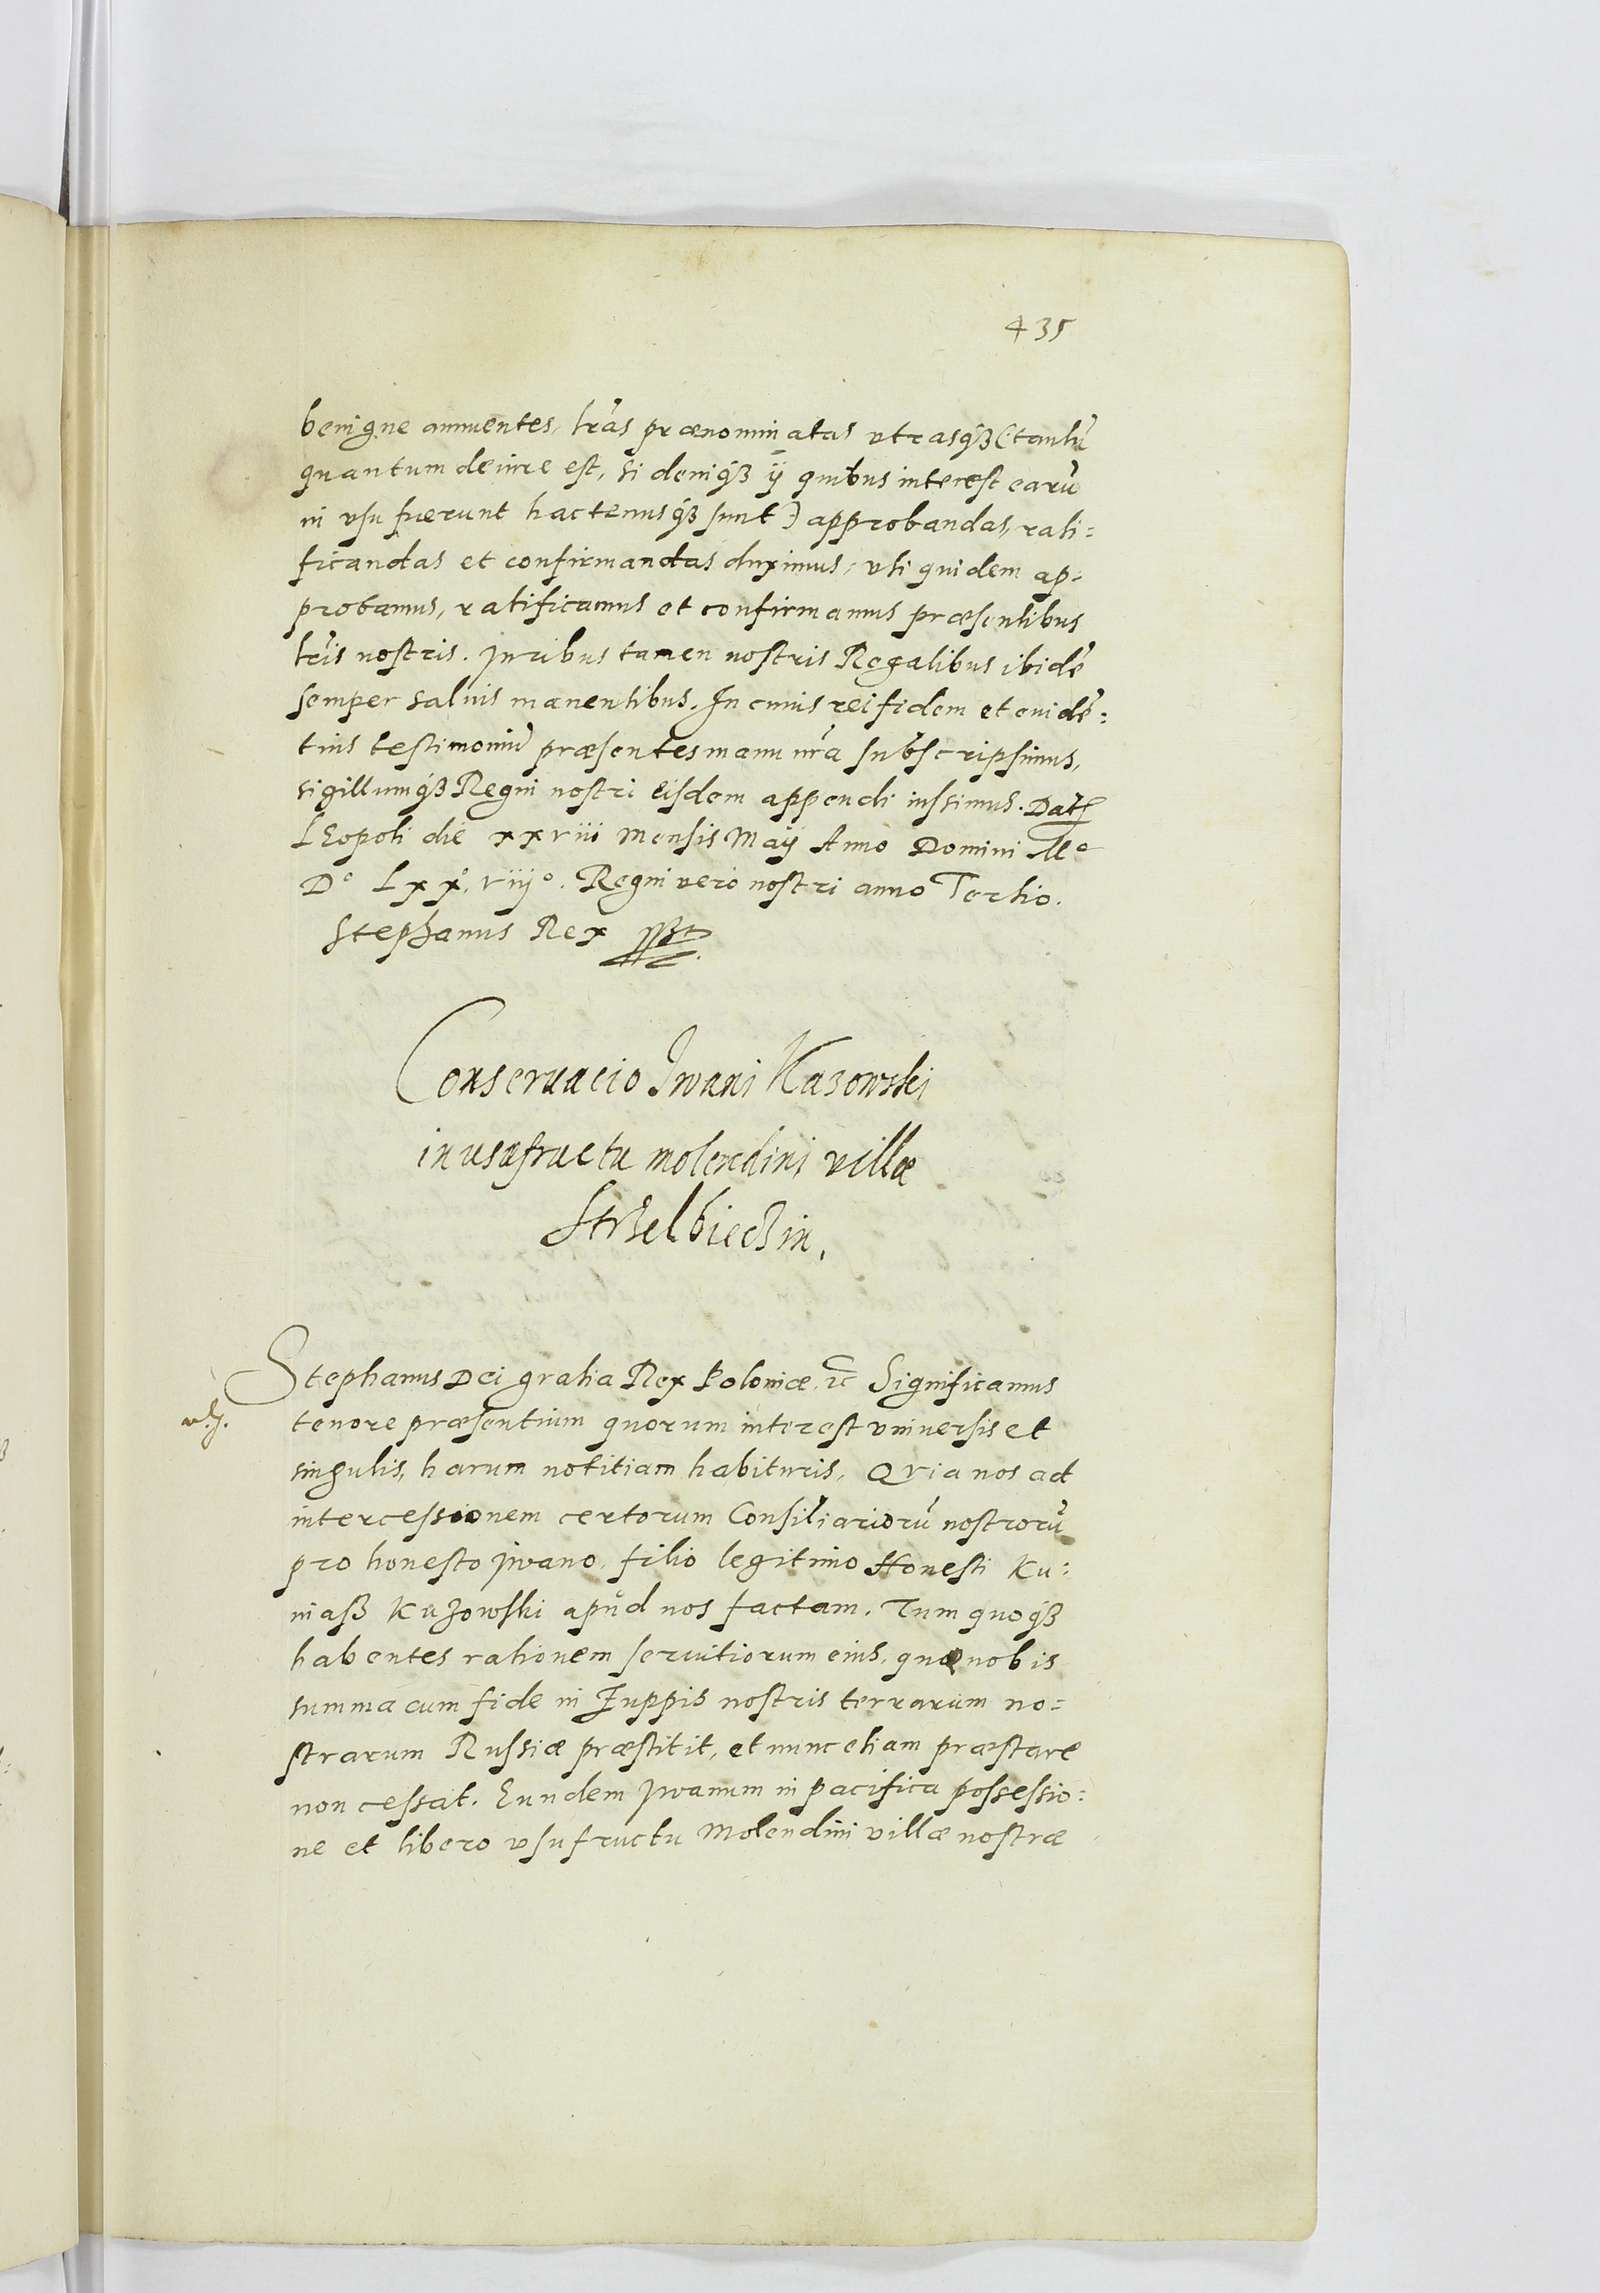 435
benigne annuentes, lr̃as prænominatas vtrasqȝ (tantũ
quantum de iure est, si deniqȝ ÿ quibus interest earũ
in vsu fuerunt hactenusqȝ sunt) approbandas, rati=
ficandas et confirmandas duximus, vti quidem ap=
probamus, ratificamus et confirmamus præsentibus
lr̃is nostris. Juribus tamen nostris Regalibus ibidẽ
semper saluis manentibus. In cuius rei fidem et euidẽ=
tius testimoniũ præsentes manu nr̃a subscripsimus,
sigillumqȝ Regni nostri eisdem appendi iussimus. Datꝭ
LEopoli die xxviii mensis Maÿ Anno Domini Mᵒ
Dᵒ Lxxᵒ. viijᵒ. Regni vero nostri anno Tertio.
Stephanus Rex
Conseruacio Iwani Kazowski
in usufructu molendini villæ
Strzelbiczin.
Stephanus Dei gratia Rex Poloniæ, ꝛc̃ Significamus
tenore præsentium quorum interest vniuersis et
singulis, harum notitiam habituris, Qvia nos ad
intercessionem certorum Consiliariorũ nostrorũ
pro honesto Jwano, filio legitimo Honesti Ku=
niasz Kuzowski apud nos factam. Tum quoqȝ
habentes rationem seruitiorum eius, quæ nobis
summa cum fide in Zuppis nostris terrarum no=
strarum Russiæ præstitit, et nunc etiam præstare
non cessat. Eundem Jwanum in pacifica possessio=
ne et libero vsufructu Molendini villæ nostræ